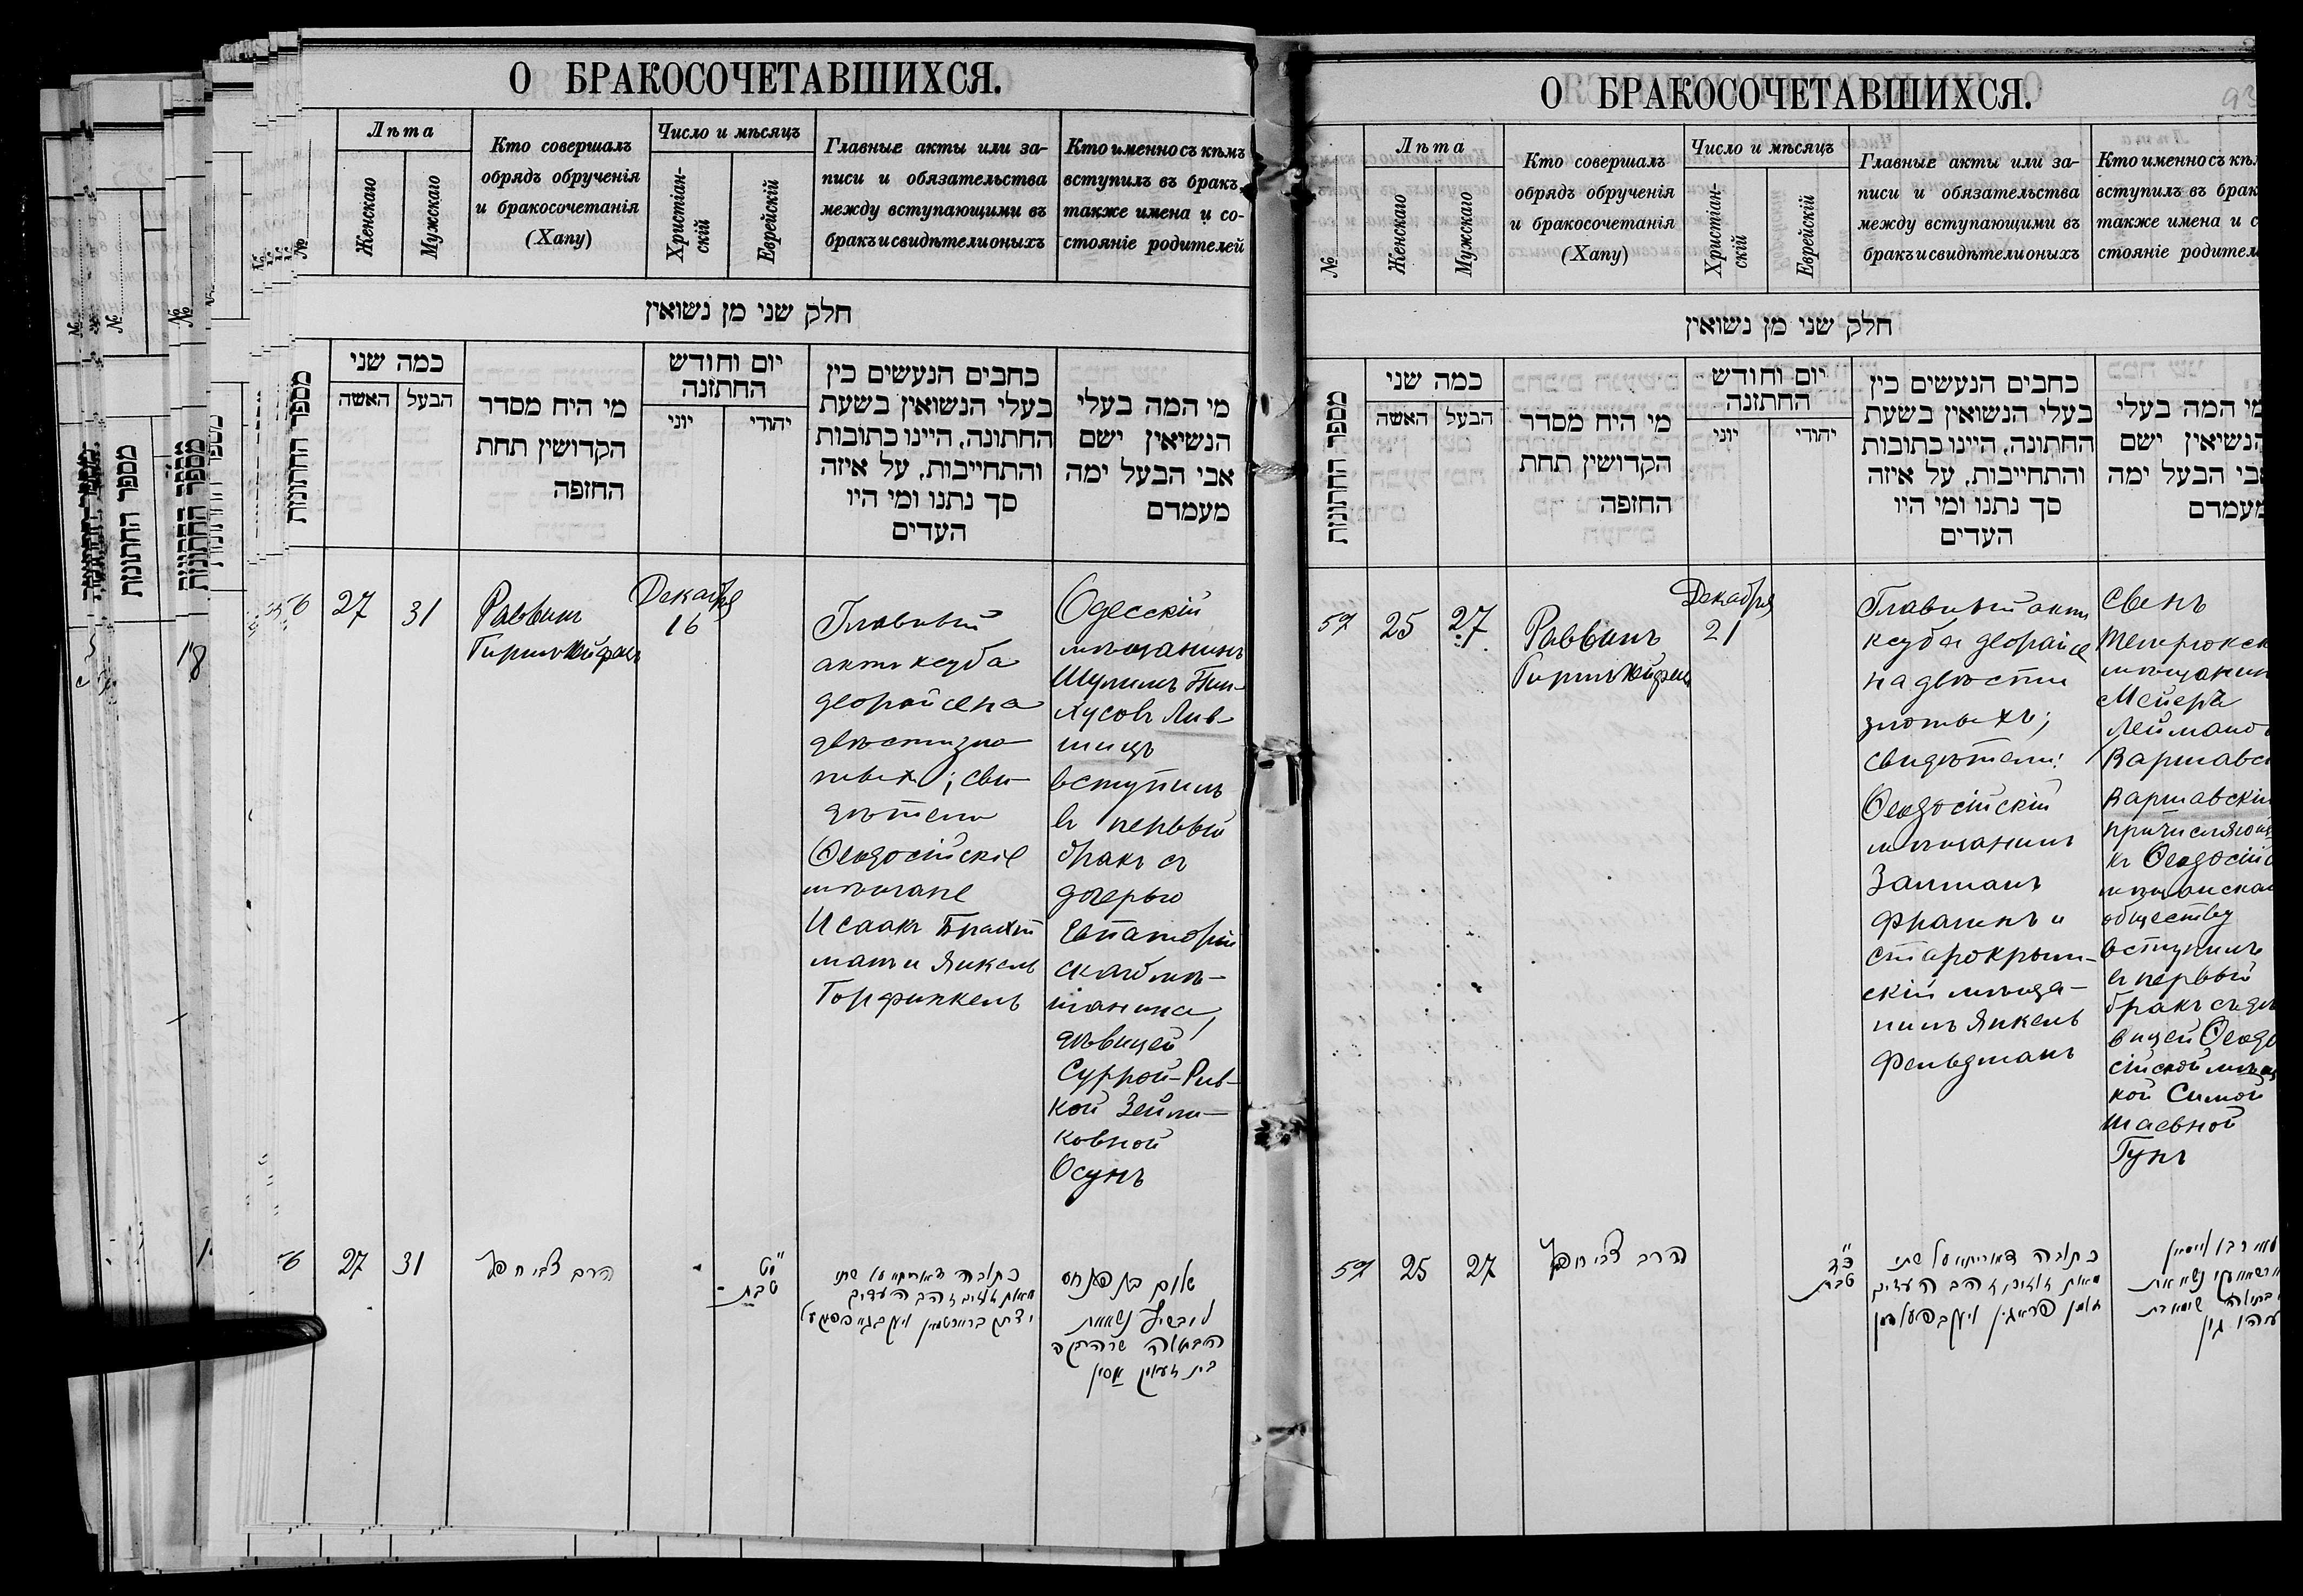 О БРАКОСОЧЕТАВШИХСЯ.
№
Лѣта
Женскаго
Мужскаго
Кто совершалъ
обрядъ обрученія
и бракосочетанія
(Хапу)
Число и мѣсяцъ
Христіан-
скій
Еврейскій
Главные акты или за-
писи и обязательства
между вступающими въ
бракъ и свидѣтели оныхъ
Кто именно съ кѣмъ
вступилъ въ бракъ,
также имена и со-
стояніе родителей
חלק שני מן נשואין
מספר החתונות
כמה שני
האשה
הבעל
מי היח מסדר
הקדושין תחת
החזפה
יום וחודש
החתזנה
יוני
יהודי
כחבים הנעשים כין
בעלי הנשואין בשעת
החתונה, היינו כתובות
והתחייבות, על איזה
סך נתנו ומי היו
העדים
מי המה בעלי
הנשיאין ישם
אבי הבעל ימה
מעמדם
56
27
31
Раввинъ
Гиршъ
Декабря
16
Главный
актъ кеуба
деорайсе на
двѣсти зло-
тыхъ; сви-
дѣтели
Ѳеодосійскіе
мѣщане
Исаакъ Брахт
манъ и Янкель
Горфинкель
Одесскій
мѣщанинъ
Шулимъ Пин-
хусовъ Лив-
шицъ
вступилъ
въ первый
бракъ съ
дочерью
Евпаторій
скаго мѣ-
щанина,
дѣвицей
Суррой-Рив-
кой Зейли-
ковной
Осунъ
56
27
31
הרב צבי חפץ
י"ט
טבת
כתובה דאורייתא על שתי
מאות זהב העדים
יצחק
שלום בן פנחס
ליבשיץ נשא את
הבתולה שרה רבקה
בית
О БРАКОСОЧЕТАВШИХСЯ.
93
№
Лѣта
Женскаго
Мужскаго
Кто совершалъ
обрядъ обрученія
и бракосочетанія
(Хапу)
Число и мѣсяцъ
Христіан-
скій
Еврейскій
Главные акты или за-
писи и обязательства
между вступающими въ
бракъ и свидѣтели оныхъ
Кто именно съ кѣм
вступилъ въ брак
также имена и с
стояніе родител
חלק שני מן נשואין
מספר החתונות
כמה שני
האשה
הבעל
מי היח מסדר
הקדושין תחת
החזפה
יום וחודש
החתזנה
יוני
יהודי
כחבים הנעשים כין
בעלי הנשואין בשעת
החתונה, היינו כתובות
והתחייבות, על איזה
סך נתנו ומי היו
העדים
מי המה בעלי
הנשיאין ישם
אבי הבעל ימה
מעמדם
57
25
27
Раввинъ
Гиршъ
Декабря
21
Главный актъ
кеуба деорайсе
на двѣсти
злотыхъ;
свидѣтели:
Ѳеодосійскій
мѣщанинъ
Залманъ
Фрагинъ и
старокрым-
скій мѣща-
нинъ Янкель
Фельдманъ
Темрюкск
мѣщанин
Мейеръ
Варшавск
Варшавскій
причисляющ
къ Ѳеодосійс
мѣщанском
обществу
вступилъ
въ первый
бракъ съ дѣ
вицей Ѳеодо
сійской мѣщан
кой Симой
Шаевной
Гунъ
57
25
27
הרב צבי חפץ
כ"ד
טבת
כתובה דאורייתא על שתי
מאות זהב העדים
זלמן פראגין ויעקב פעלדמן
גון